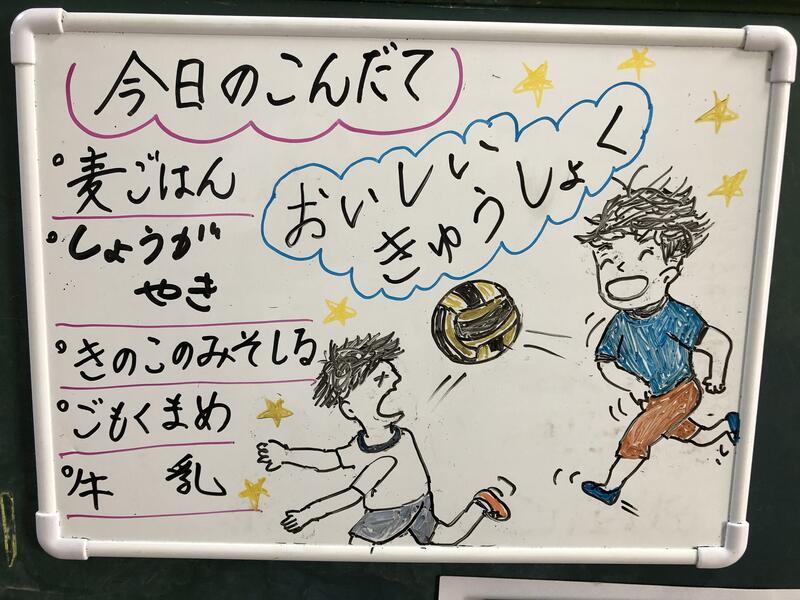 今日のこんだて
おいしい
きゅうしょく
◦麦ごはん
◦しょうが
やき
◦きのこのみそしる
◦ごもくまめ
◦牛 乳